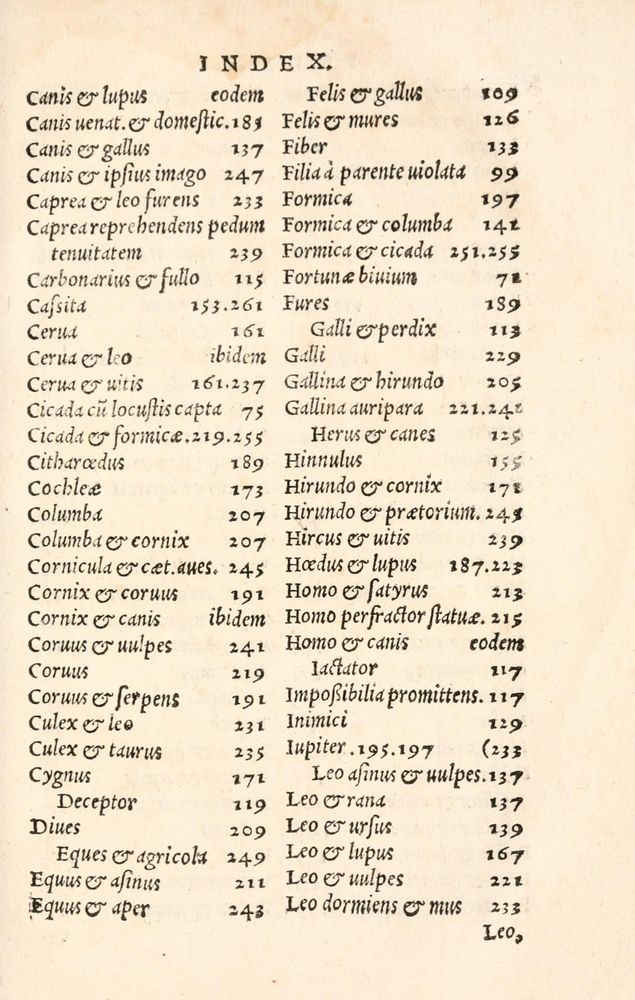 INDEX.
Canis & lupus eodem
Canis uenat. & domestic. 185
Canis & gallus 137
Canis & ipsius imago 247
Caprea & leo furens 233
Caprea reprehendens pedum
tenuitatem 239
Carbonarius & fullo 115
Cassita 153.261
Cerua 161
Cerua & leo ibidem
Cerua & uitis 161.237
Cicada cũ locustis capta 75
Cicada & formicæ. 219.255
Citharœdus 189
Cochleæ 173
Columba 207
Columba & cornix 207
Cornicula & cæt. aues. 245
Cornix & coruus 191
Cornix & canis ibidem
Coruus & uulpes 241
Coruus 219
Coruus & serpens 191
Culex & leo 231
Culex & taurus 235
Cygnus 171
Deceptor 119
Diues 209
Eques & agricola 249
Equus & asinus 211
Equus & aper 243
Felis & gallus 109
Felis & mures 126
Fiber 133
Filia à parente uiolata 99
Formica 197
Formica & columba 141
Formica & cicada 251.255
Fortunæ biuium 71
Fures 189
Galli & perdix 113
Galli 229
Gallina & hirundo 205
Gallina auripara 221.241
Herus & canes 125
Hinnulus 155
Hirundo & cornix 171
Hirundo & prætorium. 245
Hircus & uitis 239
Hœdus & lupus 187.223
Homo & satyrus 213
Homo perfractor statuæ. 215
Homo & canis eodem
Iactator 117
Impoßibilia promittens. 117
Inimici 129
Iupiter. 195.197 (233
Leo asinus & uulpes. 137
Leo & rana 137
Leo & ursus 139
Leo & lupus 167
Leo & uulpes 221
Leo dormiens & mus 233
Leo,